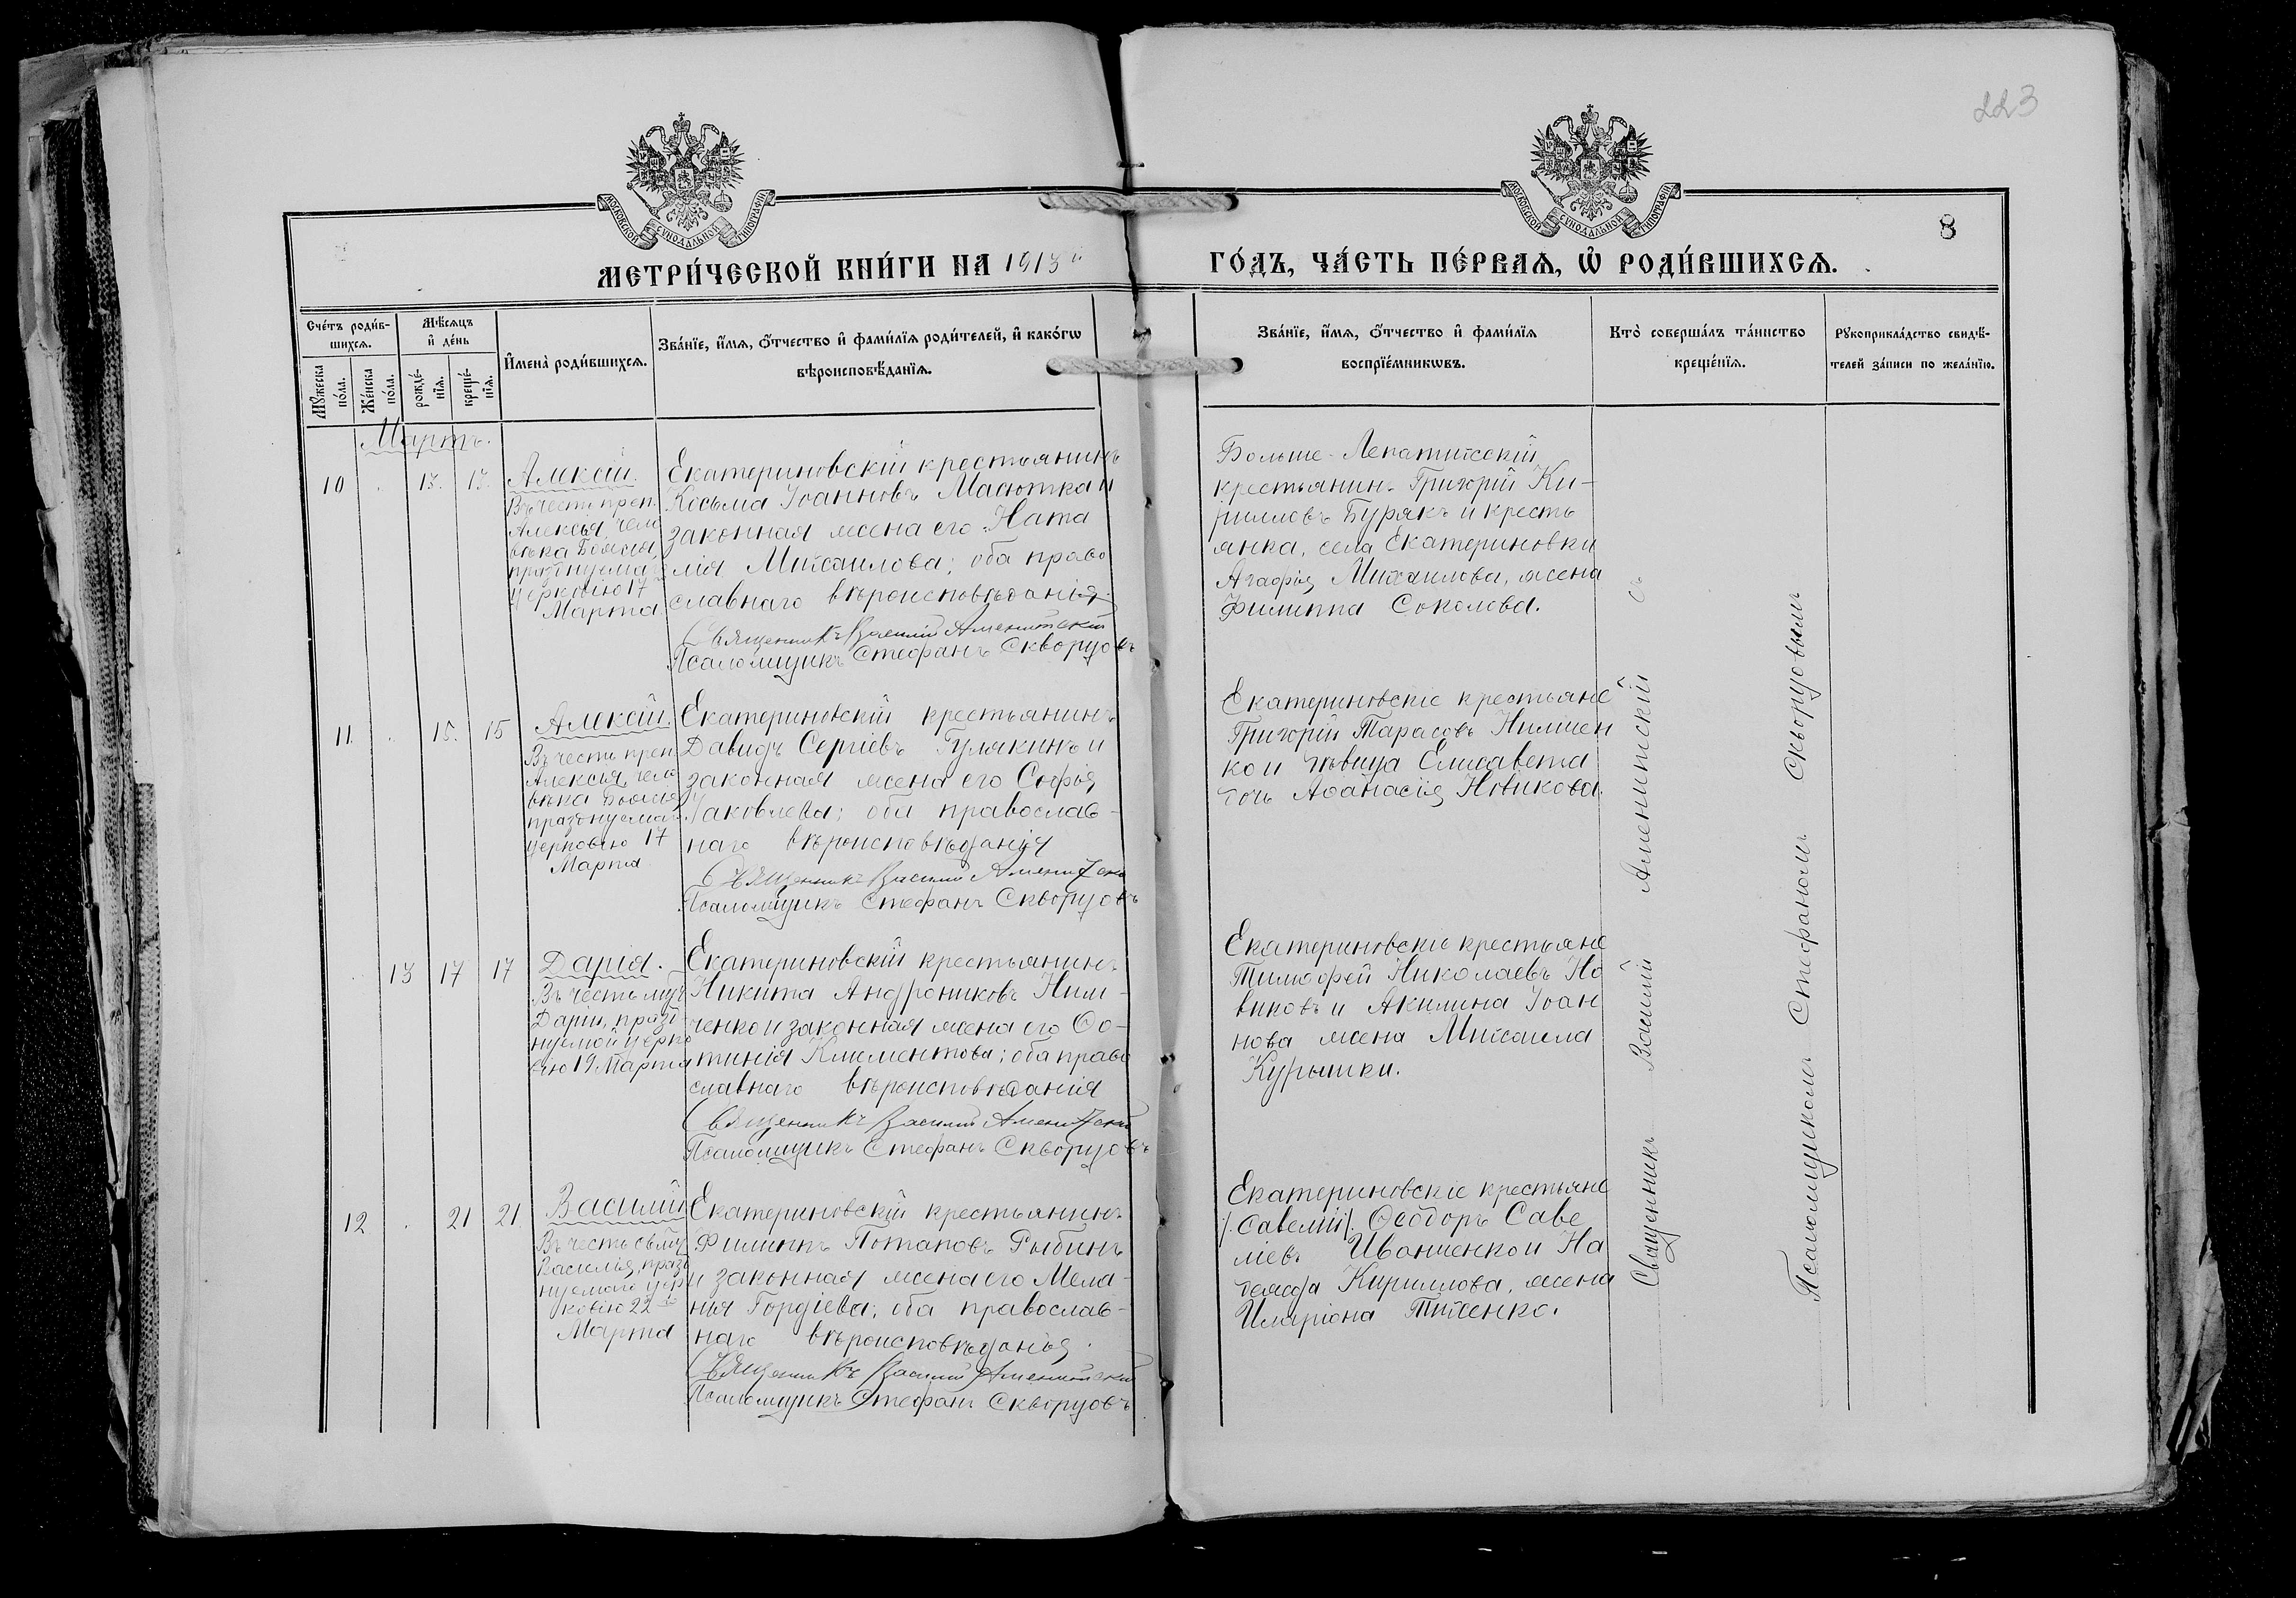 223
МОСКОВСКОЙ СѴНОДАЛЬНОЙ ТИПОГРАФІИ
МОСКОВСКОЙ СѴНОДАЛЬНОЙ ТИПОГРАФІИ
8
МЕТРИ́ЧЕСКОЙ КНИ́ГИ НА 1913й
ГО́ДЪ, ЧА́СТЬ ПЕ́РВАѦ, Ѡ҆ РОДИ́ВШИХСѦ.
Сче́тъ роди́в-
шихсѧ.
Мꙋ́жеска по́ла.
Же́нска по́ла.
Мѣ́сѧцъ и҆ де́нь
рожде́-
нїѧ.
креще́-
нїѧ.
И҆мена̀ роди́вшихсѧ.
Зва́нїе, и҆́мѧ, ѻ҆́тчество и҆ фами́лїѧ роди́телей, и҆ како́гѡ
вѣроисповѣ́данїѧ.
Зва́нїе, и҆́мѧ, ѻ҆́тчество и҆ фами́лїѧ
воспрїе́мникѡвъ.
Кто̀ соверша́лъ та́инство
креще́нїѧ.
Рꙋкоприкла́дство свидѣ́-
телей за́писи по жела́нїю.
Мартъ.
10
13.
13.
Алексій.
Въ честь преп.
Алексѣя, чело
вѣка Божія,
церковію 17
Марта
Екатериновскій крестьянинъ
Косьма Іоанновъ Масютка и
законная жена его Ната
лія Михаилова; оба право
славнаго вѣроисповѣданія.
Священникъ Василій Аменитскій
Псаломщикъ Стефанъ Скворцовъ
Больше-Лепатихскій
крестьянин. Григорій Ки-
рилловъ Бурякъ и кресть
янка, села Екатериновки
Агафія Михаилова, жена
Филиппа Соколова.
11.
15.
15
Алексій.
Въ честь преп.
Алексѣя, чело
вѣка Божія,
празднуемаго
церковію 17
Марта
Екатериновскій крестьянинъ
Давидъ Сергіевъ Гулякинъ и
законная жена его Софія
Іаковлева; оба православ-
наго вѣроисповѣданія
Священникъ Василій Аменитскій
Псаломщикъ Стефанъ Скворцовъ
Екатериновскіе крестьяне
Григорій Тарасовъ Нимчен
ко и дѣвица Елисавета
дочь Аѳанасія Новикова.
13
17
17
Дарія.
Въ честь муч.
Даріи, празд
нуемой церко
вію 19 Марта
Екатериновскій крестьянинъ
Никита Андрониковъ Ним-
ченко и законная жена его Фо-
тинія Климентова; оба право
славнаго вѣроисповѣданія
Священникъ Василій Аменитскій
Псаломщикъ Стефанъ Скворцовъ
Екатериновскіе крестьяне
Тимофей Николаевъ Но
виковъ и Акилина Іоан
нова жена Михаила
Курышки.
12
21
21.
Василій
Въ честь св. муч.
Василія, празд
нуемаго цер
ковію 22го
Марта
Екатериновскій крестьянинъ
Филиппъ Потаповъ Рыбинъ
и законная жена его Мела-
нія Гордіева, оба православ-
наго вѣроисповѣданія.
Священникъ Василій Аменитскій
Псаломщикъ Стефанъ Скворцовъ
Екатериновскіе крестьяне
/. Савелій/. Ѳеодоръ Саве
ліевъ Иванченко и На
дежда Кириллова, жена
Иларіона Тихенко.
Священникъ Василій Аменитскій съ
Псаломщикомъ Стефаномъ Скворцовымъ